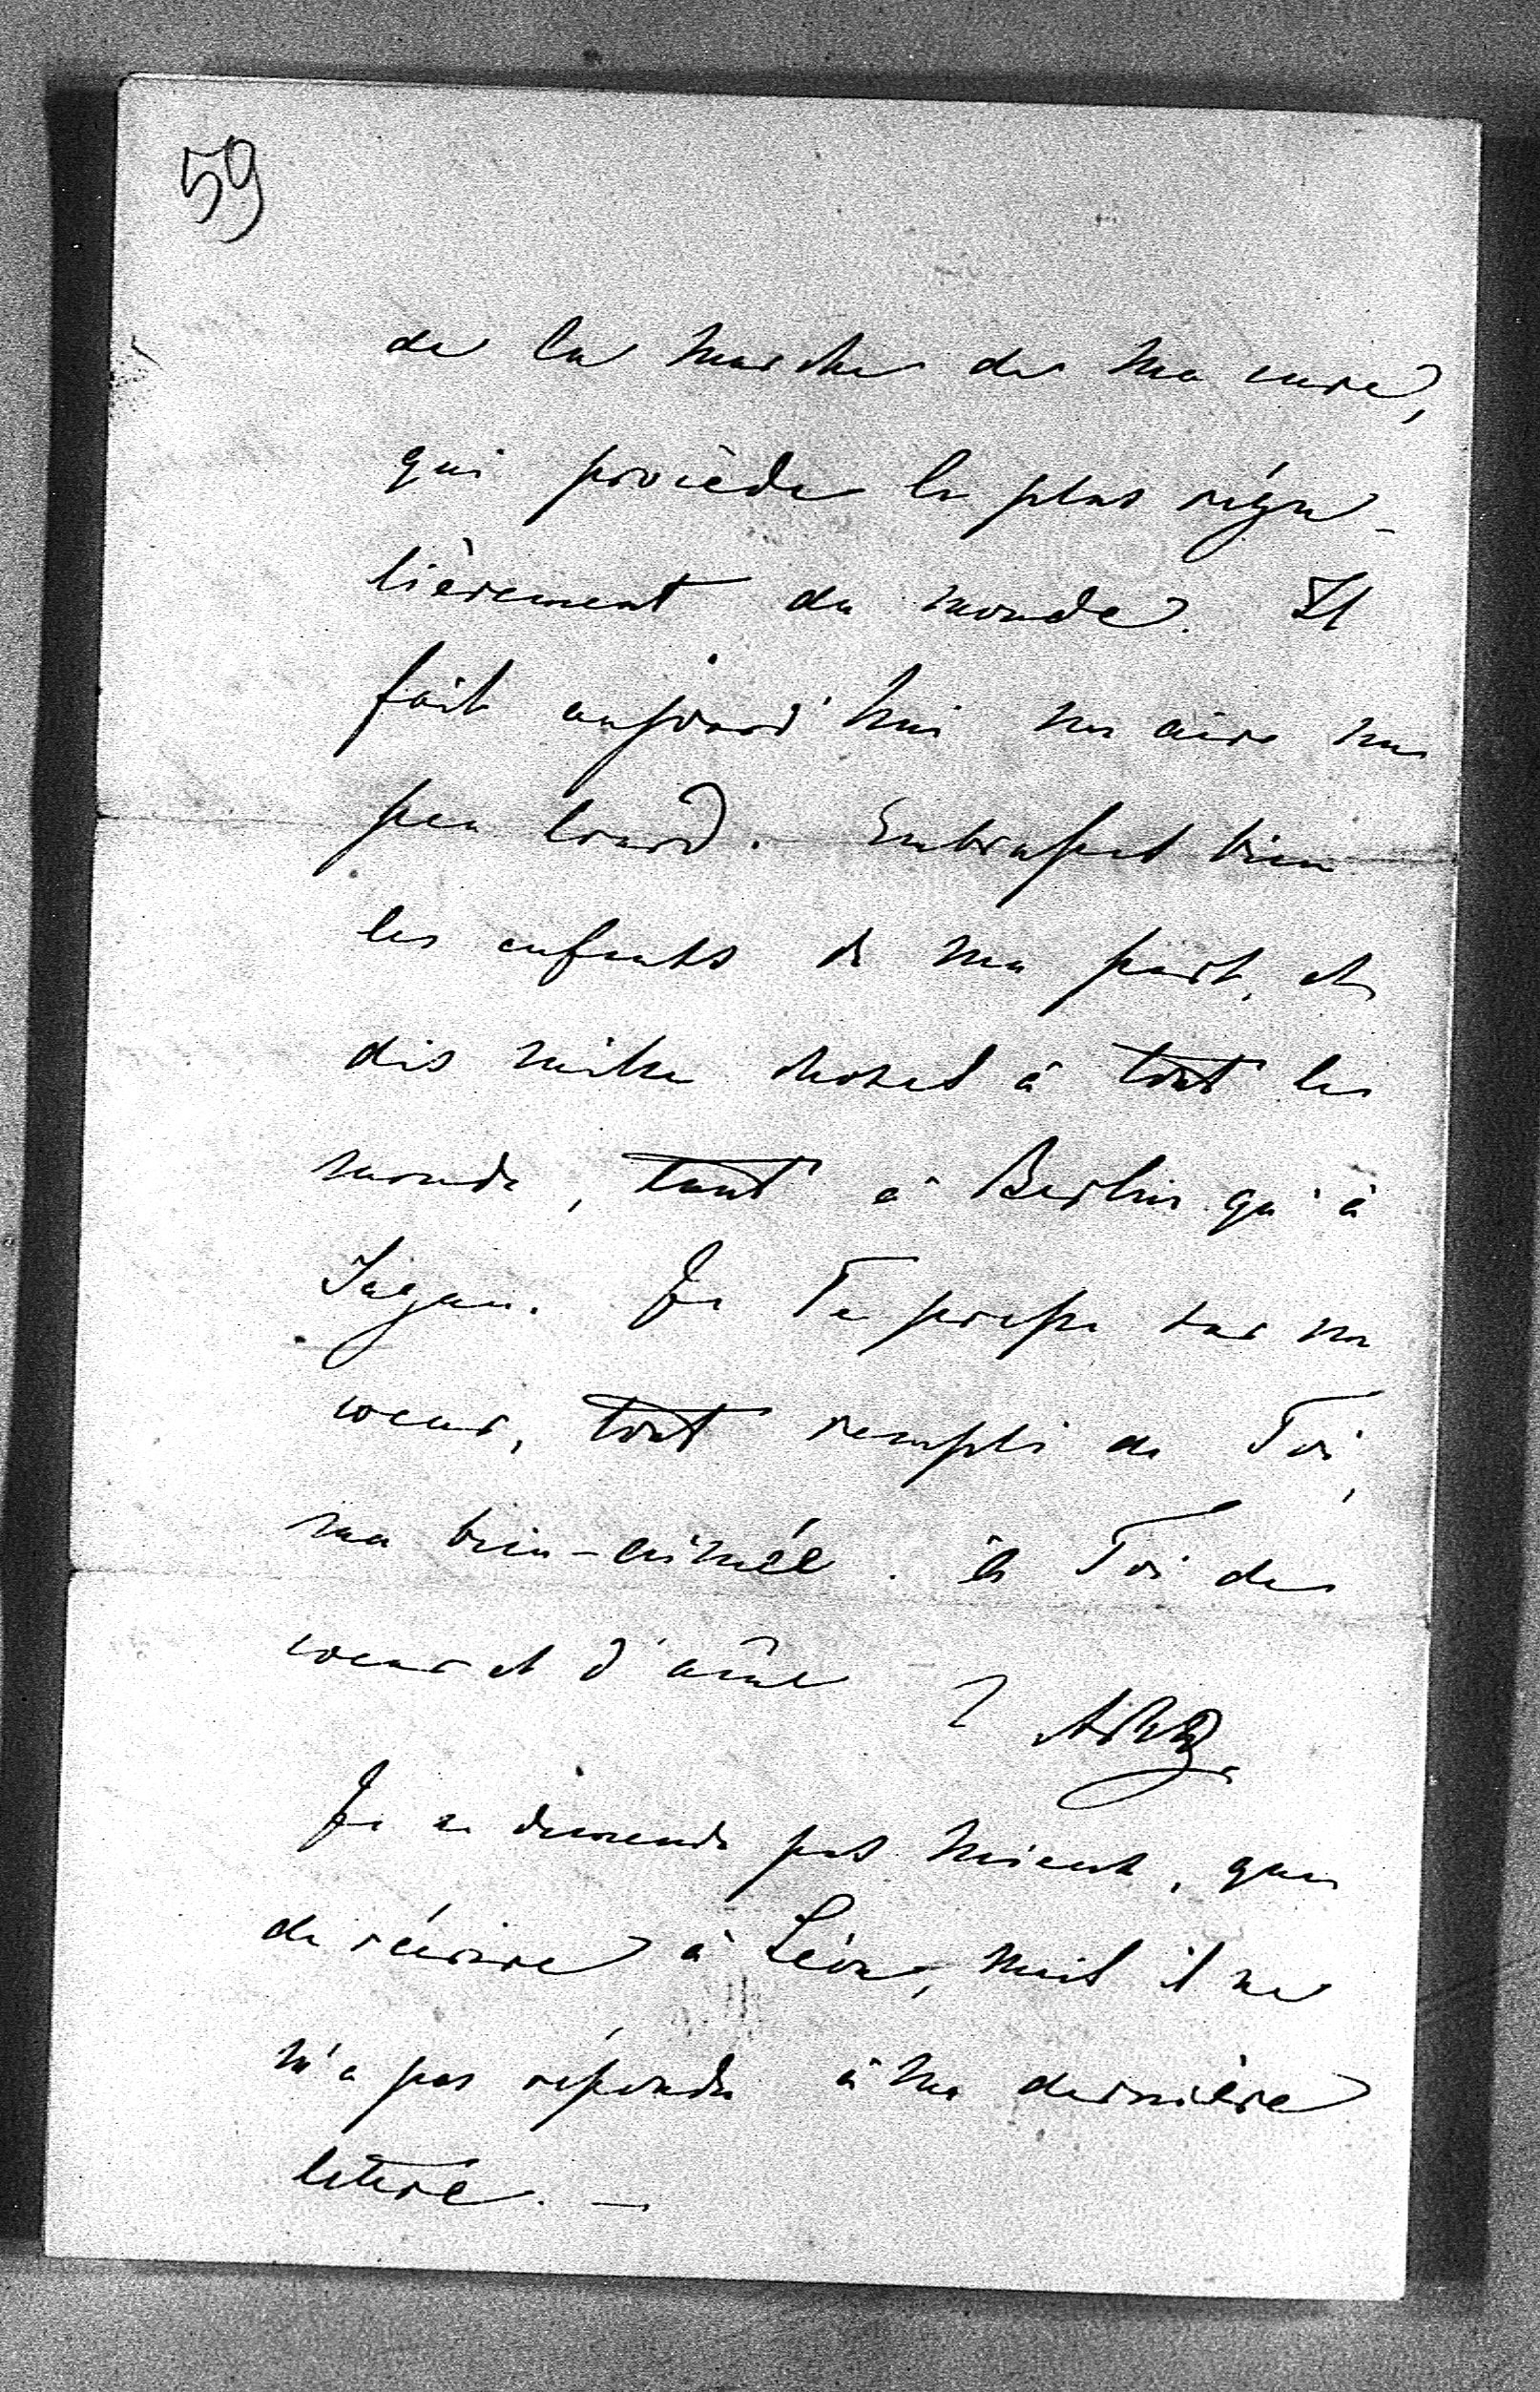 59
de la marche de ma cure,
qui procède le plus régu-
lièrement du monde. Il
fait aujourd'hui un air un
peu lourd. Embrasses bien
les enfants de ma part, et
dis mille choses à tout le
monde, tant à Berlin qu'à
Sagan. Je Te presse sur mon
coeur, tout rempli de Toi,
ma bien-aimée. à Toi de
coeur et d'âme
Je ne demande pas mieux, que
de récrire à Léon, mais il ne
m'a pas répondu à ma dernière
lettre. —